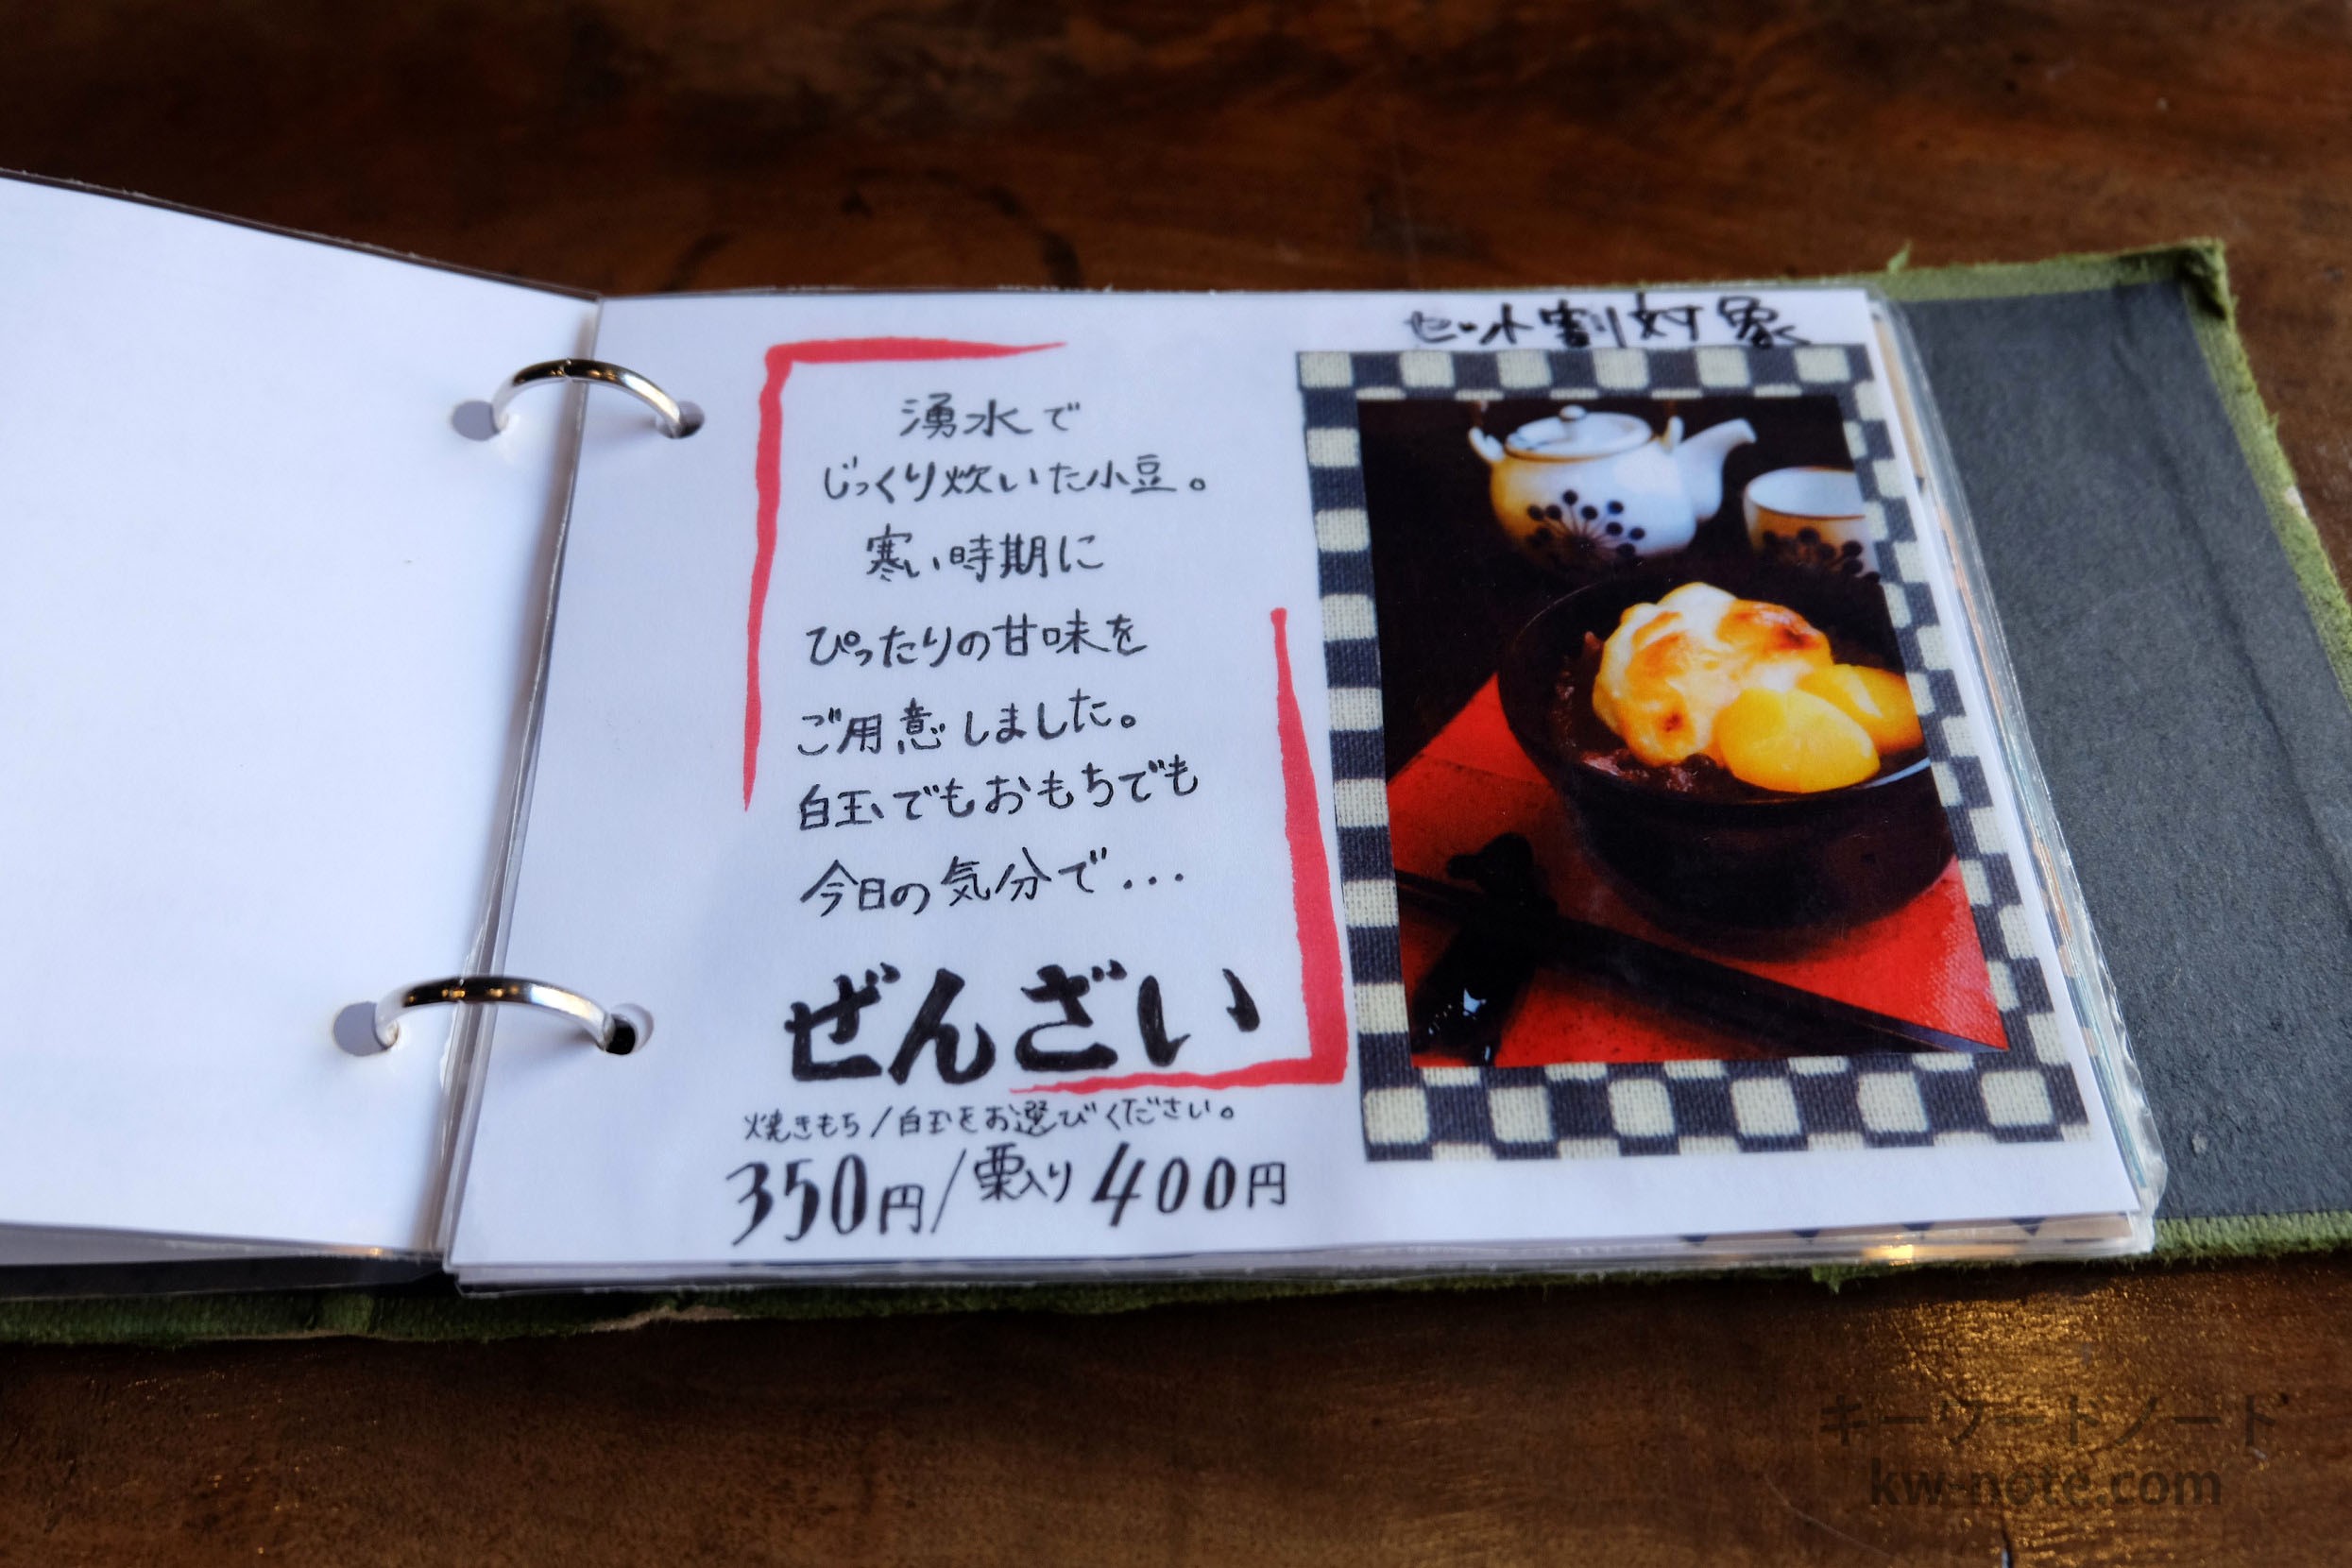 セット割対象
湧水で
じっくり炊いた小豆。
寒い時期に
ぴったりの甘味を
ご用意しました。
白玉でもおもちでも
今日の気分で...
ぜんざい
焼きもち/白玉をお選びください。
350円/栗入り400円
キーワードノート
kw-note.com